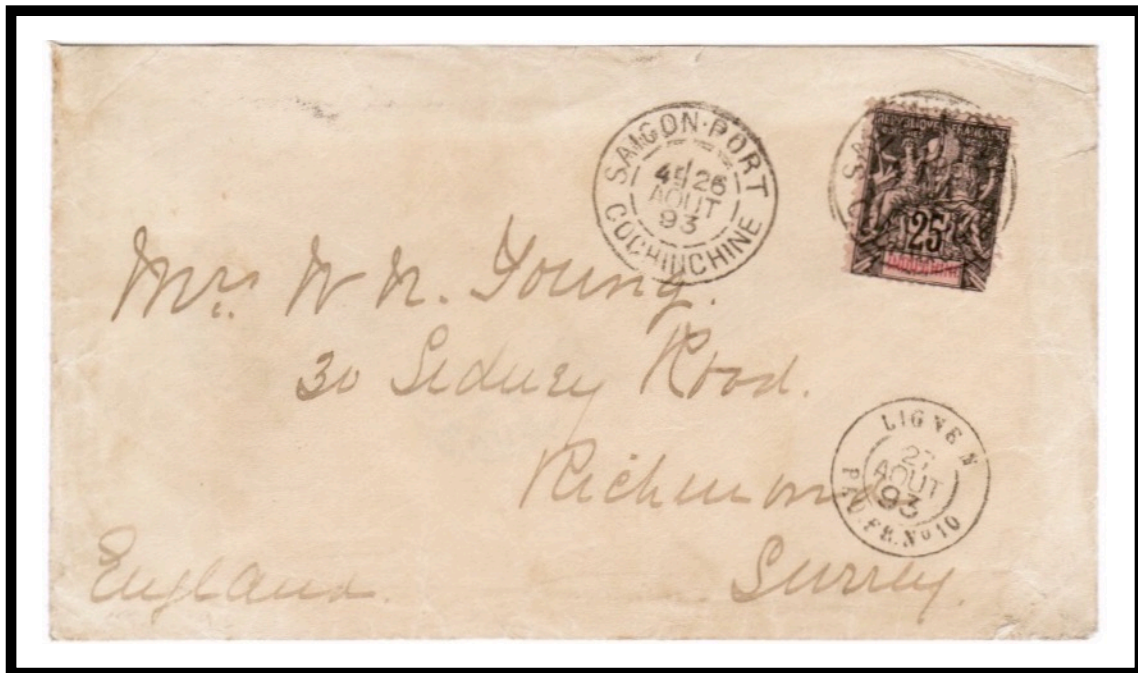 SAIGON-PORT
4E/26
AOUT
93
COCHINCHINE
REPUBLIQUE FRANCAISE
25
INDO-CHINE
Mrs. W N. Young.
30 Sidney Road.
Richmond
Surrey.
England.
LIGNE N
27
AOUT
93
PAQ. FR. No 10